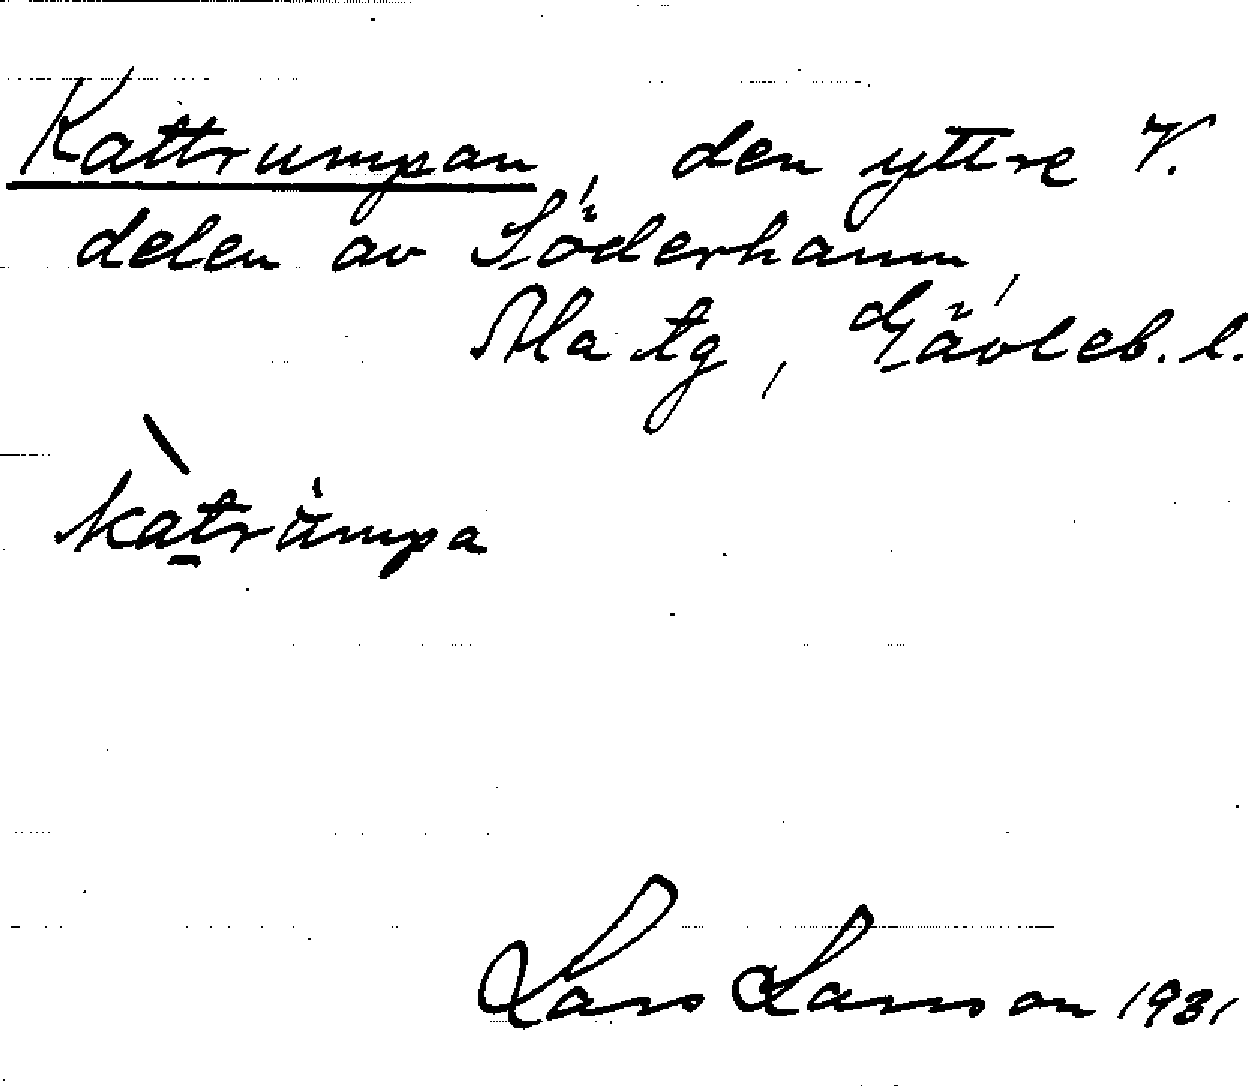 Kattrumpan, den yttre V.
delen av Söderhamn,
Ala tg, Gävleb. l.
kàtrùmpa
Lars Larsson 1931